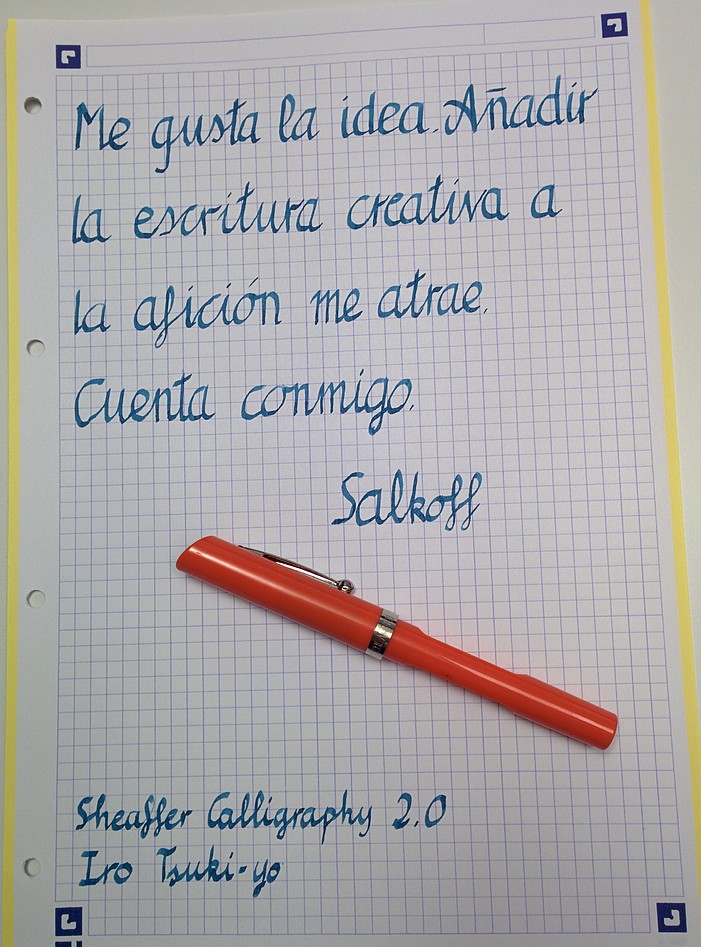 Me gusta la idea. Añadir
la escritura creativa a
la afición me atrae.
Cuenta conmigo.
Salkoff
Sheaffer Calligraphy 2.0
Iro Tsuki-yo